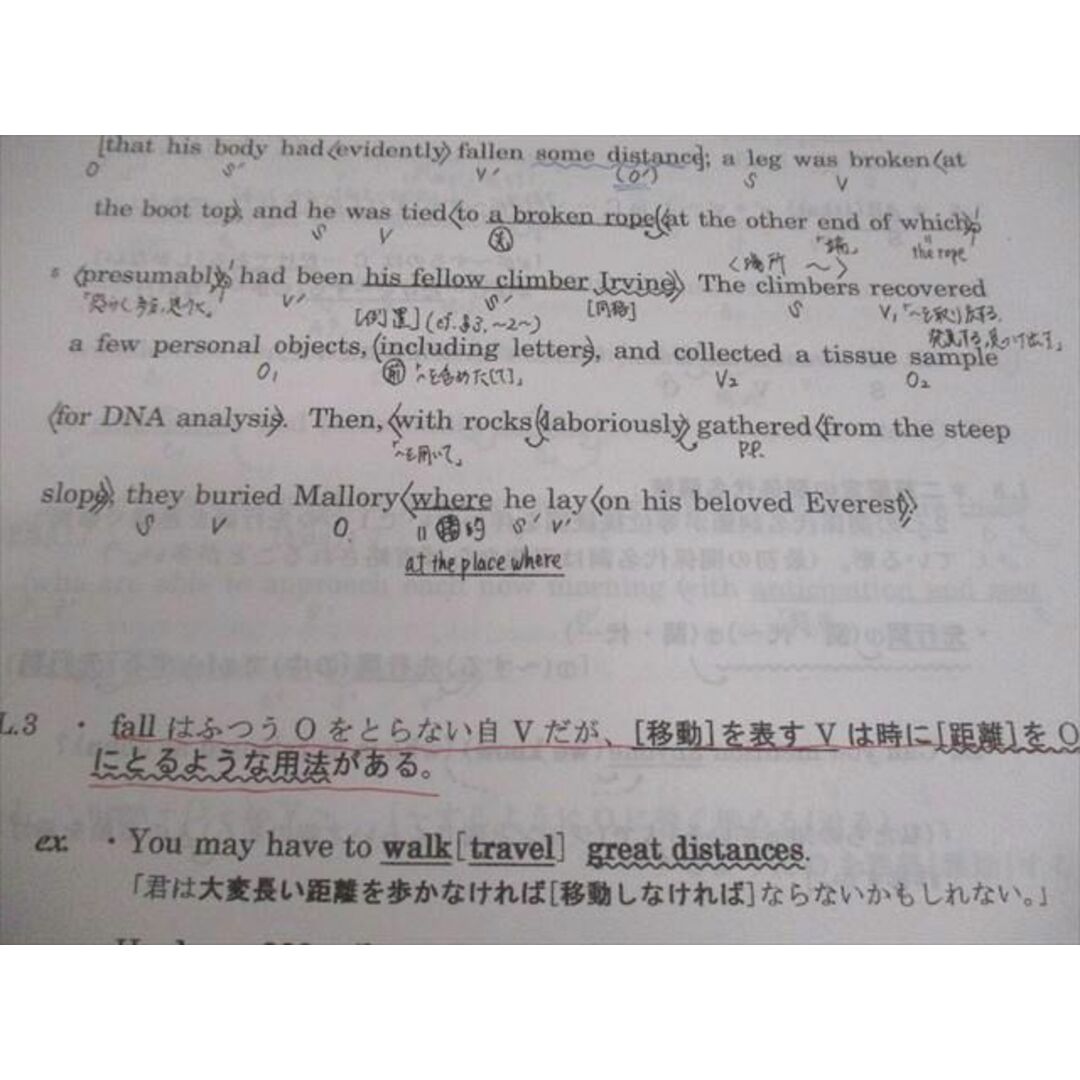 [that his body had⟨evidently⟩ fallen some distance]; a leg was broken⟨at
O S' V' (O') S V
the boot top⟩, and he was tied⟨to a broken rope(⟨at the other end of which⟩,
S V 先 「端」 " the rope
s ⟨presumably⟩, had been his fellow climber Irving)⟩ The climbers recovered
V' S' 〈場所 ～〉 S V₁
[倒置] (cf. §3. ～2～) [同格] 「～を取り戻する,
a few personal objects, ⟨including letters⟩, and collected a tissue sample
O₁ 前 「～を含めた[て]」 V₂ O₂
⟨for DNA analysis⟩. Then, ⟨with rocks(⟨laboriously⟩ gathered⟨from the steep
「～を用いて」 P.P.
slope⟩)⟩, they buried Mallory⟨where he lay⟨on his beloved Everest⟩⟩
S V O " S' V'
at the place where
L.3 ・ fall はふつう O をとらない自 V だが、[移動]を表す V は時に[距離]を O
にとるような用法がある。
ex. ・You may have to walk[travel] great distances.
「君は大変長い距離を歩かなければ[移動しなければ]ならないかもしれない。」